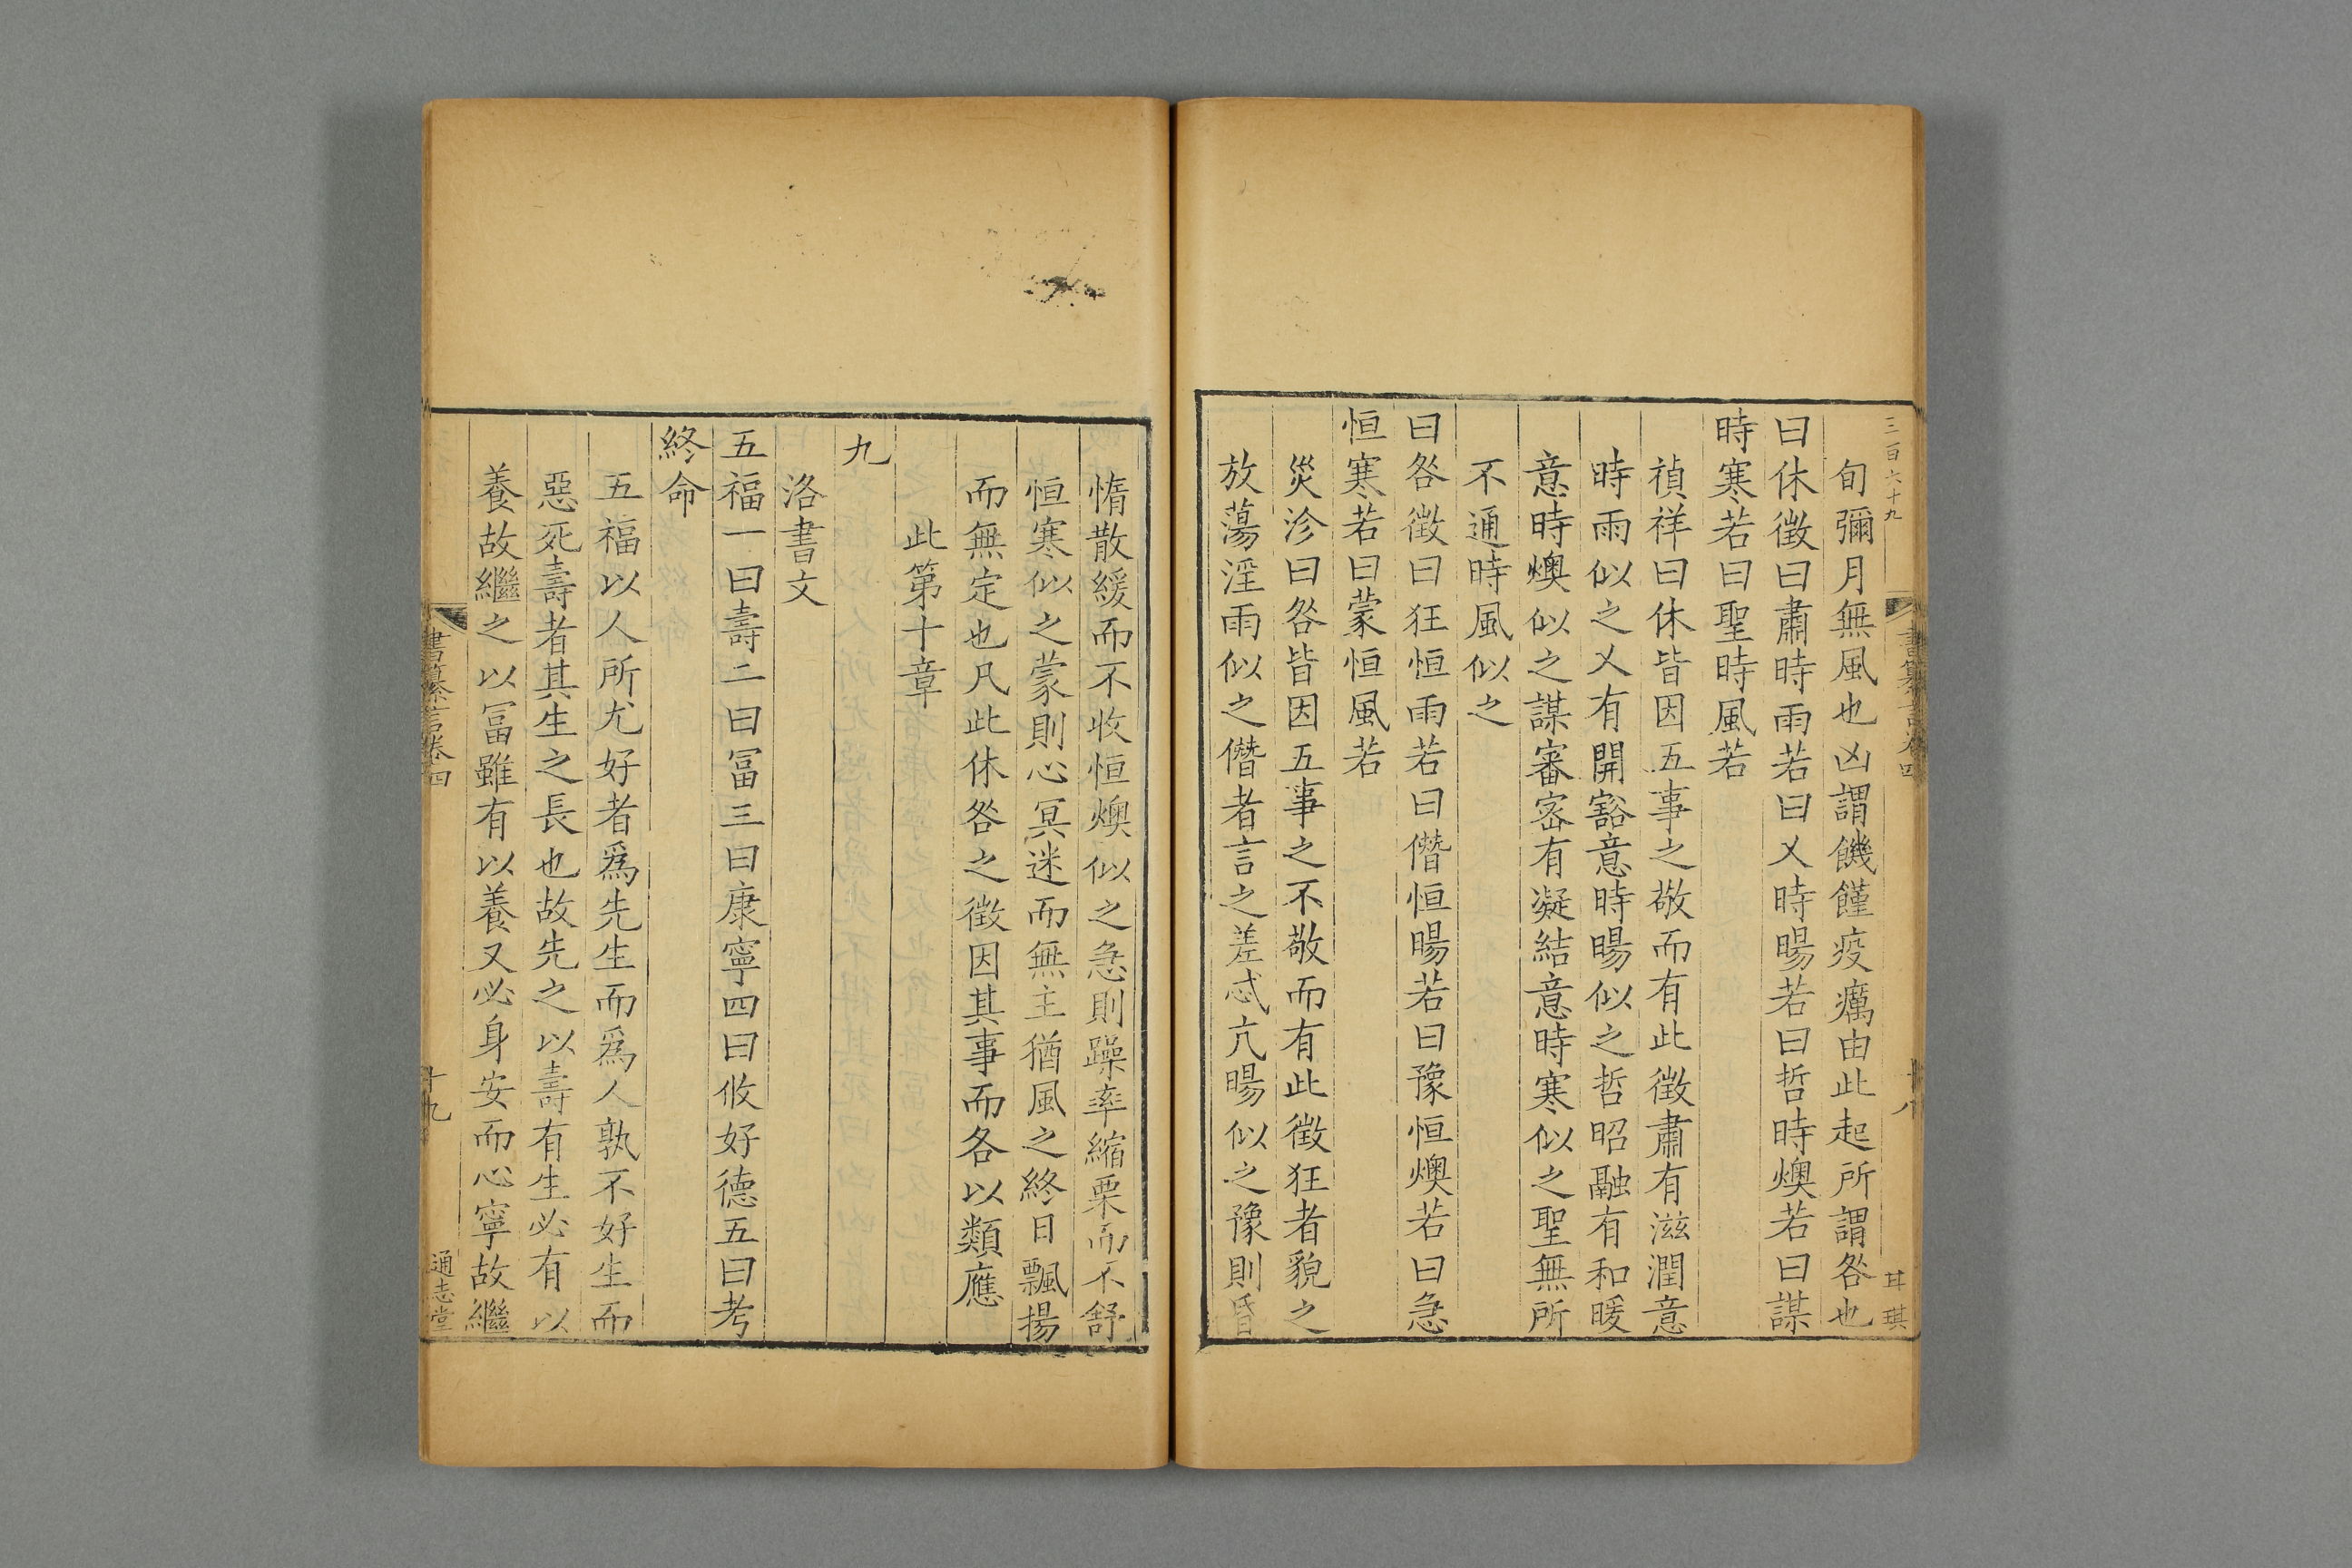 三百六十九
書纂言卷四
十八
甘琪
旬彌月無風也凶謂饑饉疫癘由此起所謂咎也
曰休徴曰肅時雨若曰乂時暘若曰哲時燠若曰謀
時寒若曰聖時風若
禎祥曰休皆因五事之敬而有此徴肅有滋潤意
時雨似之乂有開豁意時暘似之哲昭融有和暖
意時燠似之謀審宻有凝結意時寒似之聖無所
不通時風似之
曰咎徴曰狂恒雨若曰僭恒暘若曰豫恒燠若曰急
恒寒若曰蒙恒風若
災沴曰咎皆因五事之不敬而有此徴狂者貌之
放蕩淫雨似之僭者言之差忒亢暘似之豫則昏
惰散緩而不收恒燠似之急則躁率縮栗而不舒
恒寒似之蒙則心冥迷而無主猶風之終日飄揚
而無定也凡此休咎之徴因其事而各以類應
此第十章
九
洛書文
五福一曰壽二曰冨三曰康寧四曰攸好德五曰考
終命
五福以人所尤好者爲先生而爲人孰不好生而
惡死壽者其生之長也故先之以壽有生必有以
養故繼之以冨雖有以養又必身安而心寧故繼
書纂言卷四
十九
通志堂